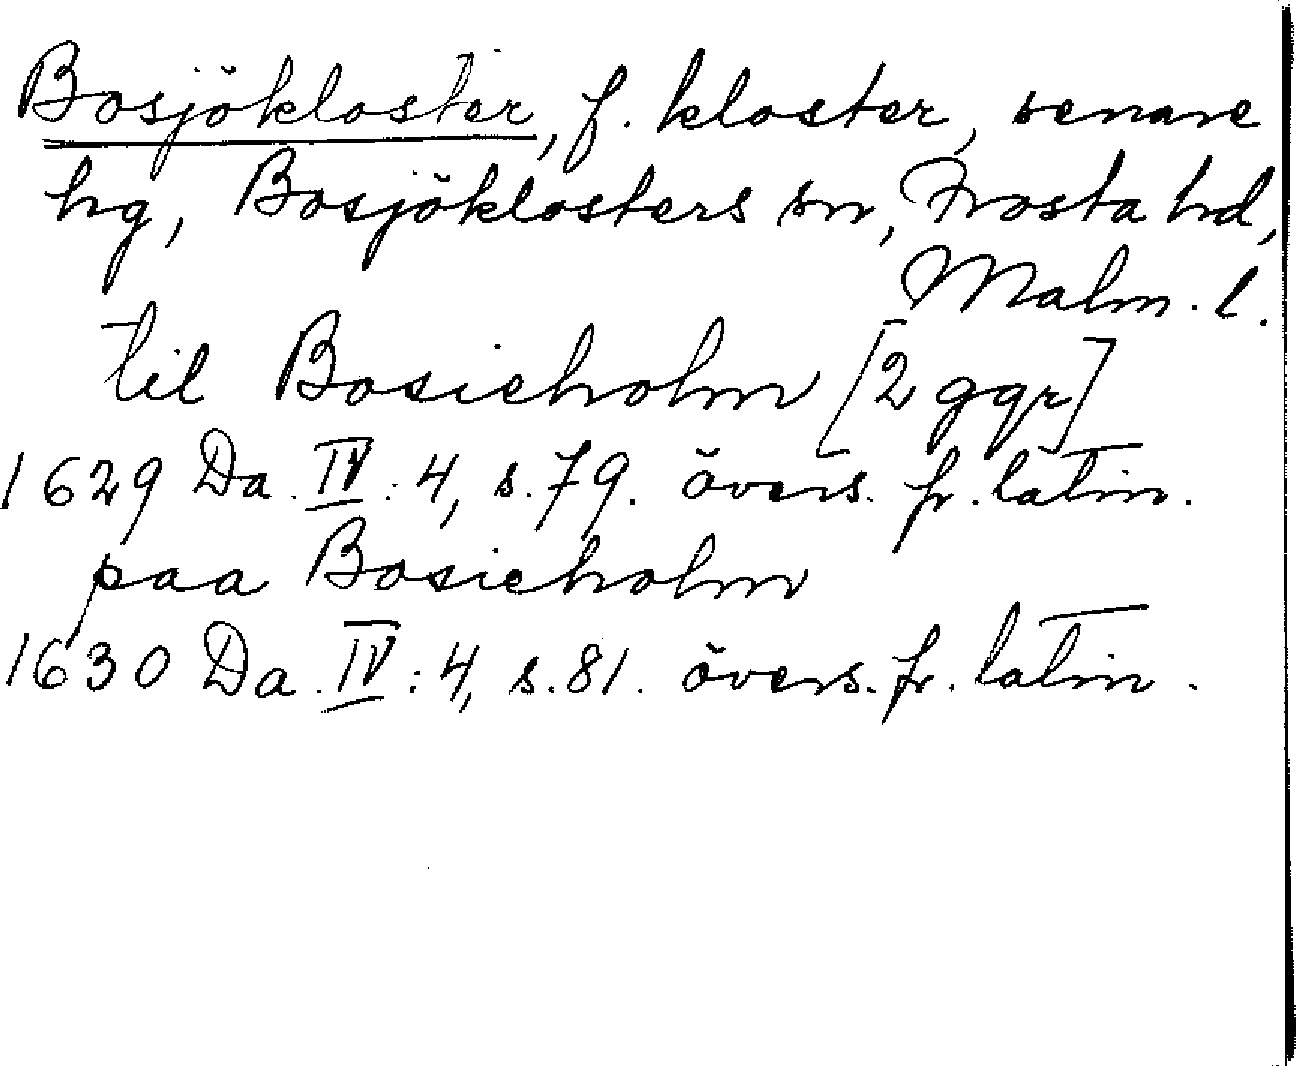 Bosjökloster, f. kloster, senare
hg, Bosjöklosters sn, Frosta hd,
Malm. l.
til Bosieholm [2 ggr]
1629 Da. IV: 4, s. 79. övers. fr. latin.
paa Bosieholm
1630 Da. IV: 4, s. 81. övers. fr. latin.